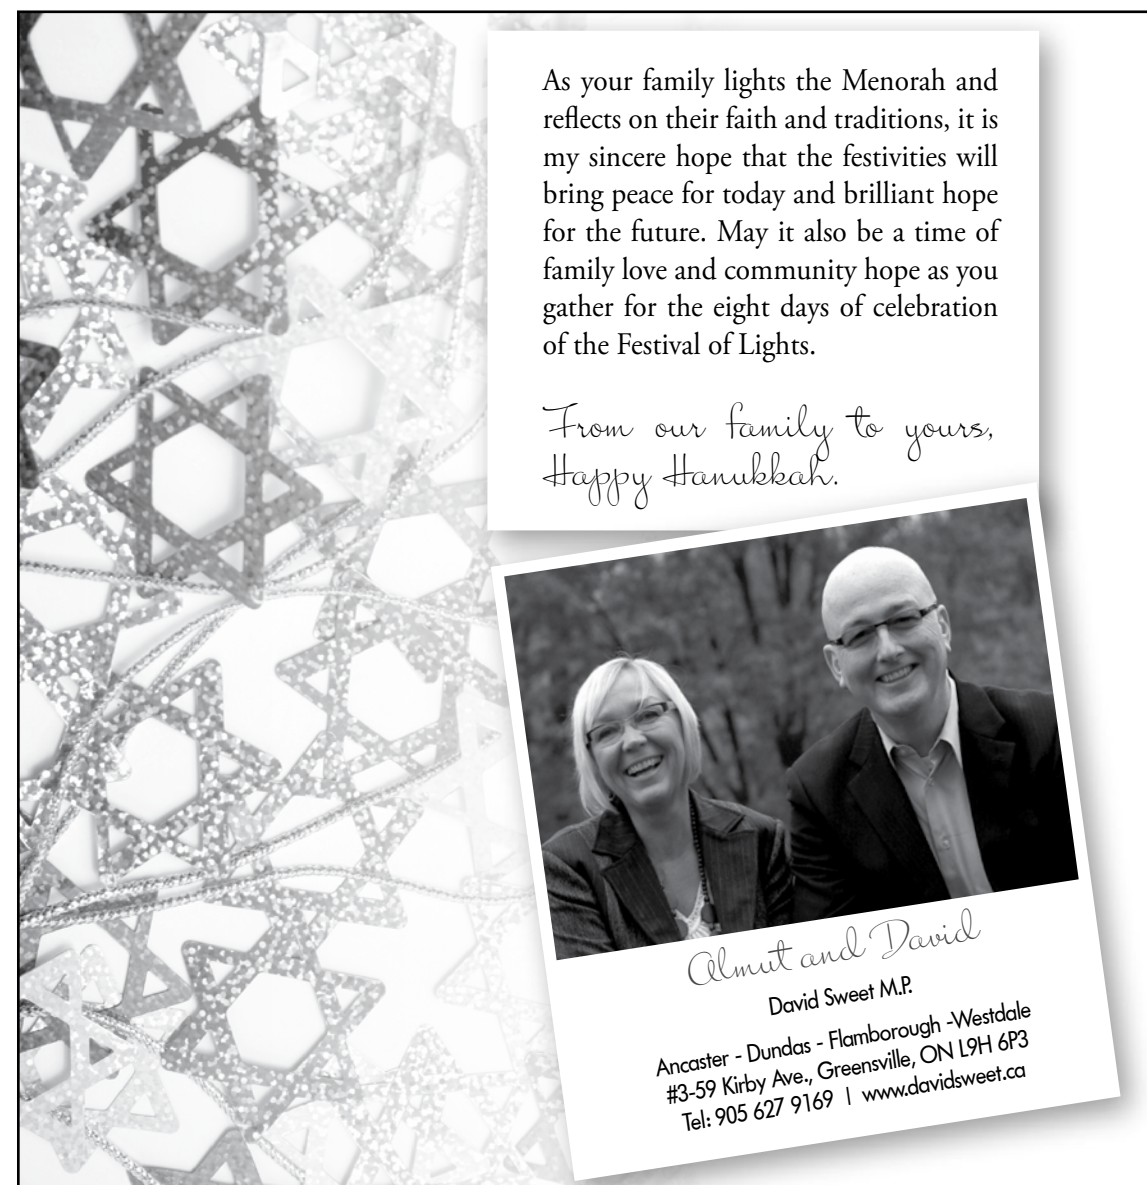 As your family lights the Menorah and
reflects on their faith and traditions, it is
my sincere hope that the festivities will
bring peace for today and brilliant hope
for the future. May it also be a time of
family love and community hope as you
gather for the eight days of celebration
of the Festival of Lights.
From our family to yours,
Happy Hanukkah.
Almut and David
David Sweet M.P.
Ancaster - Dundas - Flamborough -Westdale
#3-59 Kirby Ave., Greensville, ON L9H 6P3
Tel: 905 627 9169 | www.davidsweet.ca